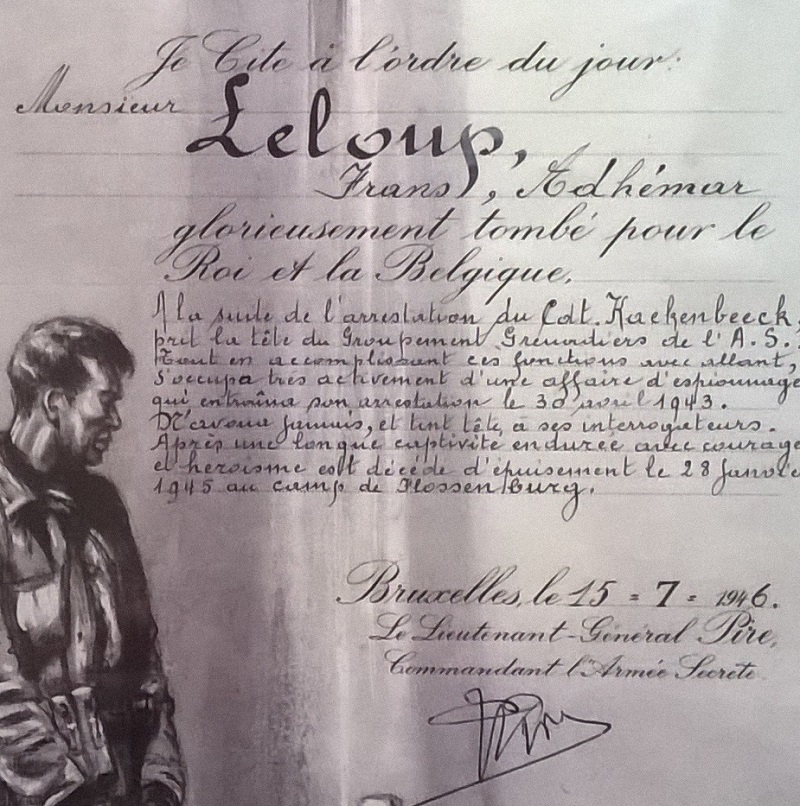 Je Cite à l'ordre du jour:
Monsieur
Leloup,
Frans, Adhémar
glorieusement tombé pour le
Roi et la Belgique.
A la suite de l'arrestation du Cdt. Kaekenbeeck,
prit la tête du Groupement Grenadiers de l'A.S.
Tout en accomplissant ces fonctions avec allant,
s'occupa très activement d'une affaire d'espionnage
qui entraîna son arrestation le 30 avril 1943.
N'avoua jamais, et tint tête à ses interrogateurs.
Après une longue captivité endurée avec courage
et héroïsme est décédé d'épuisement le 28 Janvie
1945 au camp de Flossenburg.
Bruxelles, le 15 = 7 = 1946.
Le Lieutenant-Général Pire,
Commandant l'Armée Secrète.
Pire